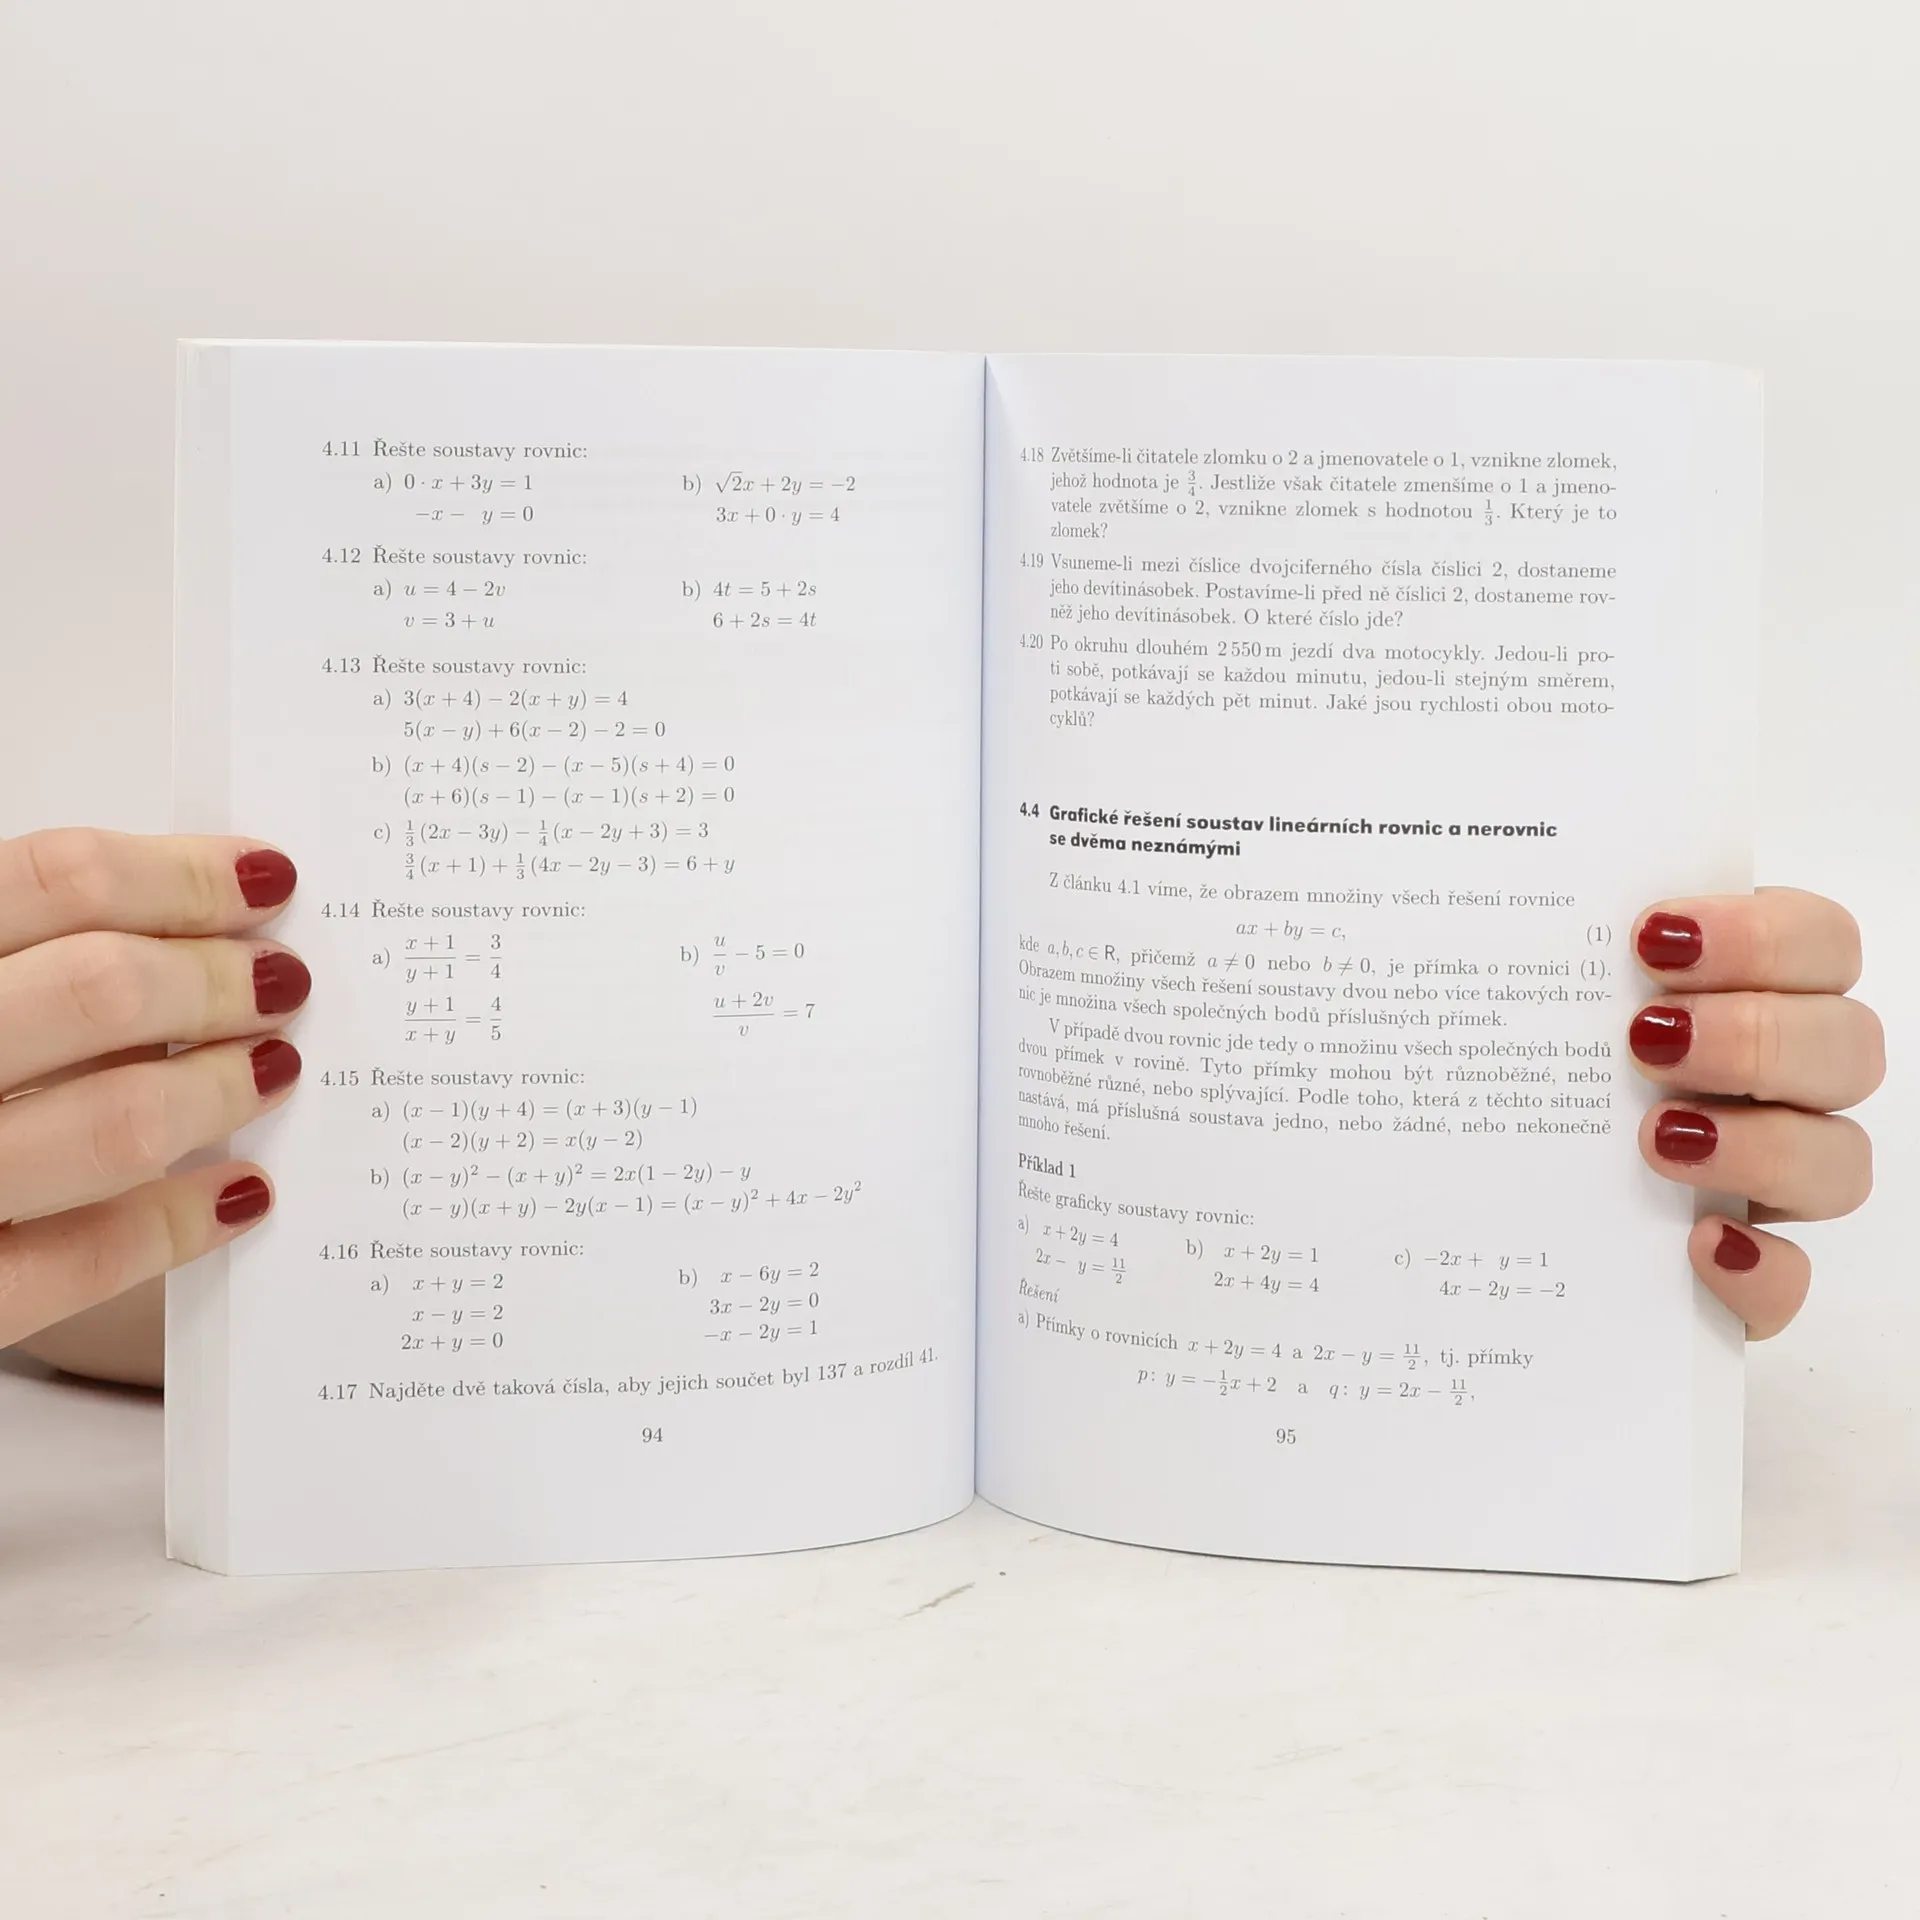 4.11 Řešte soustavy rovnic:
a) 0 · x + 3y = 1 b) √2x + 2y = −2
−x − y = 0 3x + 0 · y = 4
4.12 Řešte soustavy rovnic:
a) u = 4 − 2v b) 4t = 5 + 2s
v = 3 + u 6 + 2s = 4t
4.13 Řešte soustavy rovnic:
a) 3(x + 4) − 2(x + y) = 4
5(x − y) + 6(x − 2) − 2 = 0
b) (x + 4)(s − 2) − (x − 5)(s + 4) = 0
(x + 6)(s − 1) − (x − 1)(s + 2) = 0
c) 1/3 (2x − 3y) − 1/4 (x − 2y + 3) = 3
3/4 (x + 1) + 1/3 (4x − 2y − 3) = 6 + y
4.14 Řešte soustavy rovnic:
a) (x + 1)/(y + 1) = 3/4 b) u/v − 5 = 0
(y + 1)/(x + y) = 4/5 (u + 2v)/v = 7
4.15 Řešte soustavy rovnic:
a) (x − 1)(y + 4) = (x + 3)(y − 1)
(x − 2)(y + 2) = x(y − 2)
b) (x − y)² − (x + y)² = 2x(1 − 2y) − y
(x − y)(x + y) − 2y(x − 1) = (x − y)² + 4x − 2y²
4.16 Řešte soustavy rovnic:
a) x + y = 2 b) x − 6y = 2
x − y = 2 3x − 2y = 0
2x + y = 0 −x − 2y = 1
4.17 Najděte dvě taková čísla, aby jejich součet byl 137 a rozdíl 41.
94
4.18 Zvětšíme-li čitatele zlomku o 2 a jmenovatele o 1, vznikne zlomek,
jehož hodnota je 3/4. Jestliže však čitatele zmenšíme o 1 a jmeno-
vatele zvětšíme o 2, vznikne zlomek s hodnotou 1/3. Který je to
zlomek?
4.19 Vsuneme-li mezi číslice dvojciferného čísla číslici 2, dostaneme
jeho devítinásobek. Postavíme-li před ně číslici 2, dostaneme rov-
něž jeho devítinásobek. O které číslo jde?
4.20 Po okruhu dlouhém 2 550 m jezdí dva motocykly. Jedou-li pro-
ti sobě, potkávají se každou minutu, jedou-li stejným směrem,
potkávají se každých pět minut. Jaké jsou rychlosti obou moto-
cyklů?
4.4 Grafické řešení soustav lineárních rovnic a nerovnic
se dvěma neznámými
Z článku 4.1 víme, že obrazem množiny všech řešení rovnice
ax + by = c, (1)
kde a, b, c ∈ R, přičemž a ≠ 0 nebo b ≠ 0, je přímka o rovnici (1).
Obrazem množiny všech řešení soustavy dvou nebo více takových rov-
nic je množina všech společných bodů příslušných přímek.
V případě dvou rovnic jde tedy o množinu všech společných bodů
dvou přímek v rovině. Tyto přímky mohou být různoběžné, nebo
rovnoběžné různé, nebo splývající. Podle toho, která z těchto situací
nastává, má příslušná soustava jedno, nebo žádné, nebo nekonečně
mnoho řešení.
Příklad 1
Řešte graficky soustavy rovnic:
a) x + 2y = 4 b) x + 2y = 1 c) −2x + y = 1
2x − y = 11/2 2x + 4y = 4 4x − 2y = −2
Řešení
a) Přímky o rovnicích x + 2y = 4 a 2x − y = 11/2, tj. přímky
p: y = −1/2x + 2 a q: y = 2x − 11/2,
95